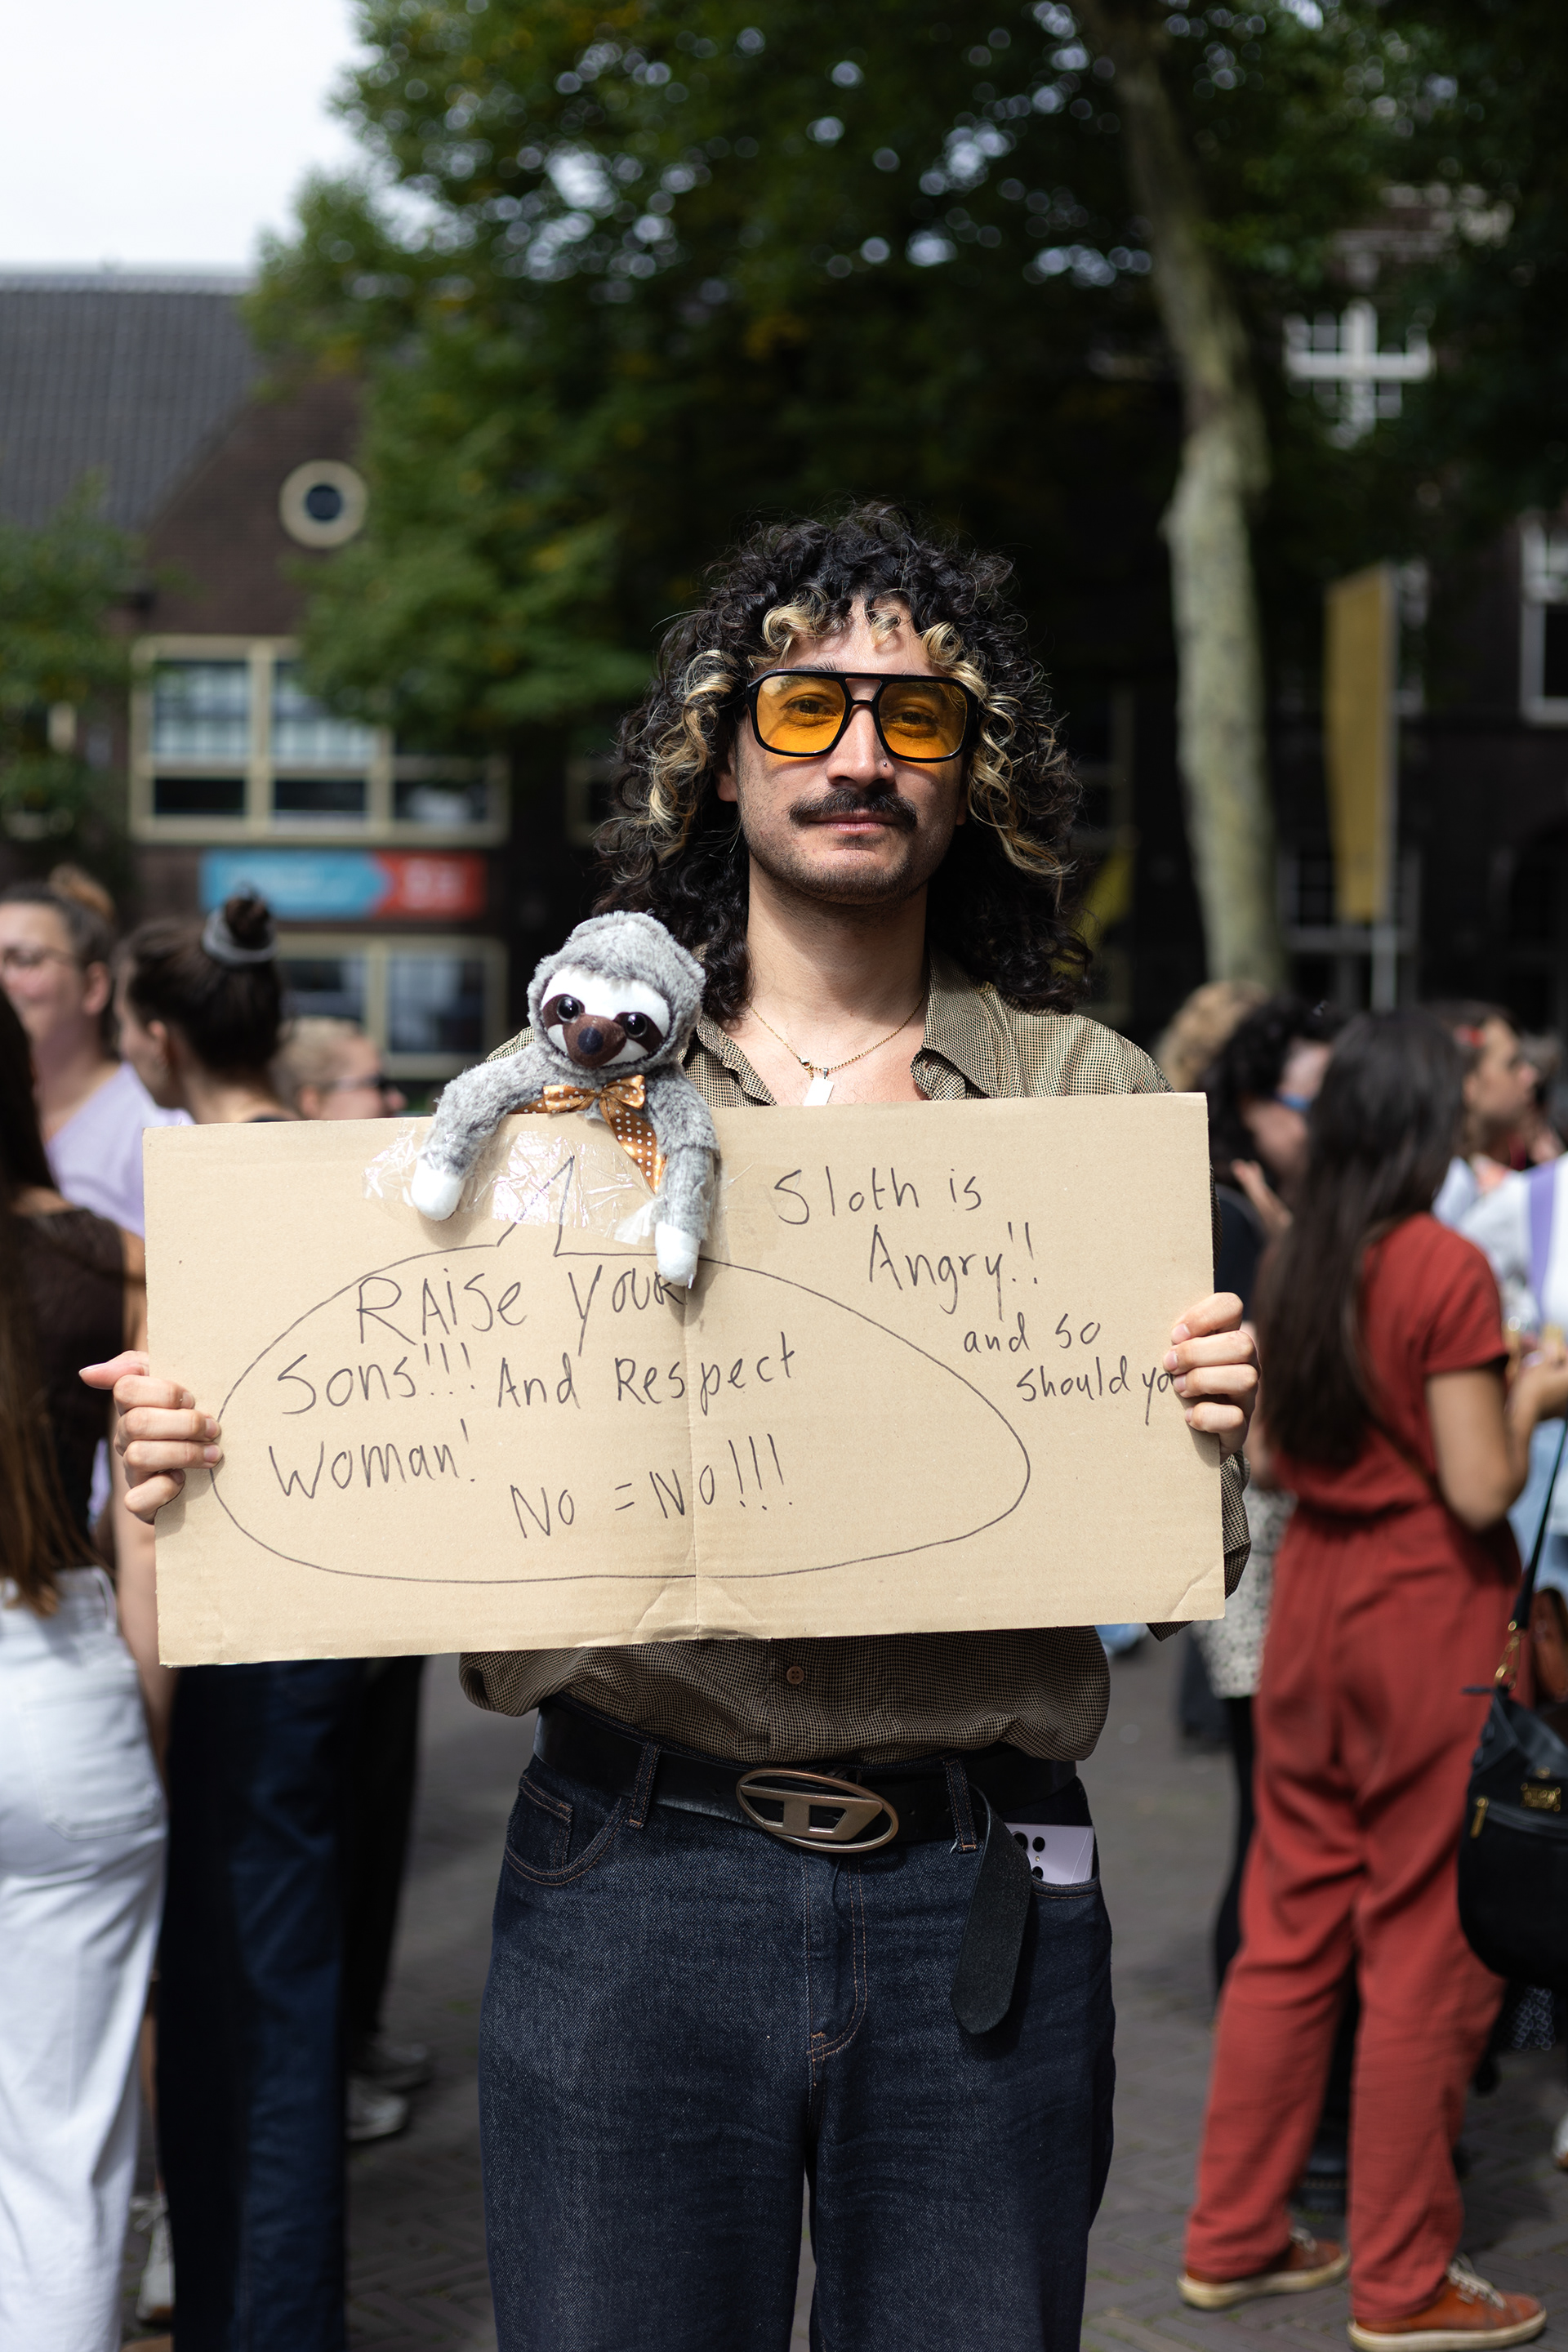 RAise YOUR
Sons!!! And Respect
Woman!
No = No!!!
Sloth is
Angry!!
and so
should yo